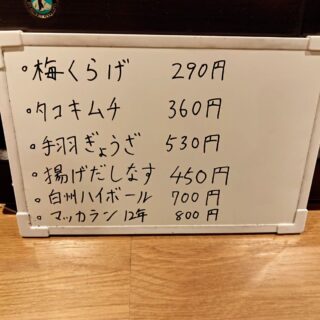 •梅くらげ 290円
•タコキムチ 360円
•手羽ぎょうざ 530円
•揚げだしなす 450円
•白州ハイボール 700円
•マッカラン12年 800円